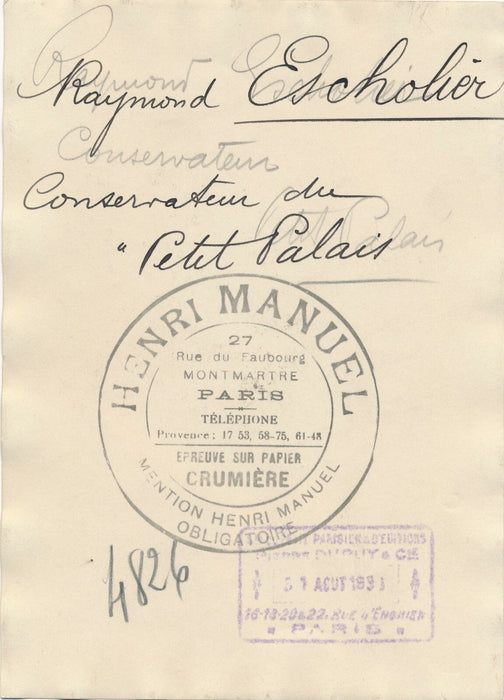 Raymond Escholier
Conservateur
Conservateur du
" Petit Palais
Petit Palais
HENRI MANUEL
27
Rue du Faubourg
MONTMARTRE
PARIS
TÉLÉPHONE
Provence : 17-53, 58-75, 61-48
EPREUVE SUR PAPIER
CRUMIÈRE
MENTION HENRI MANUEL
OBLIGATOIRE
4826
PARISIEN & D'ÉDITIONS
PIERRE DUPUY & CIE
AOUT
16-18-20 & 22, RUE D'ENGHIEN
PARIS